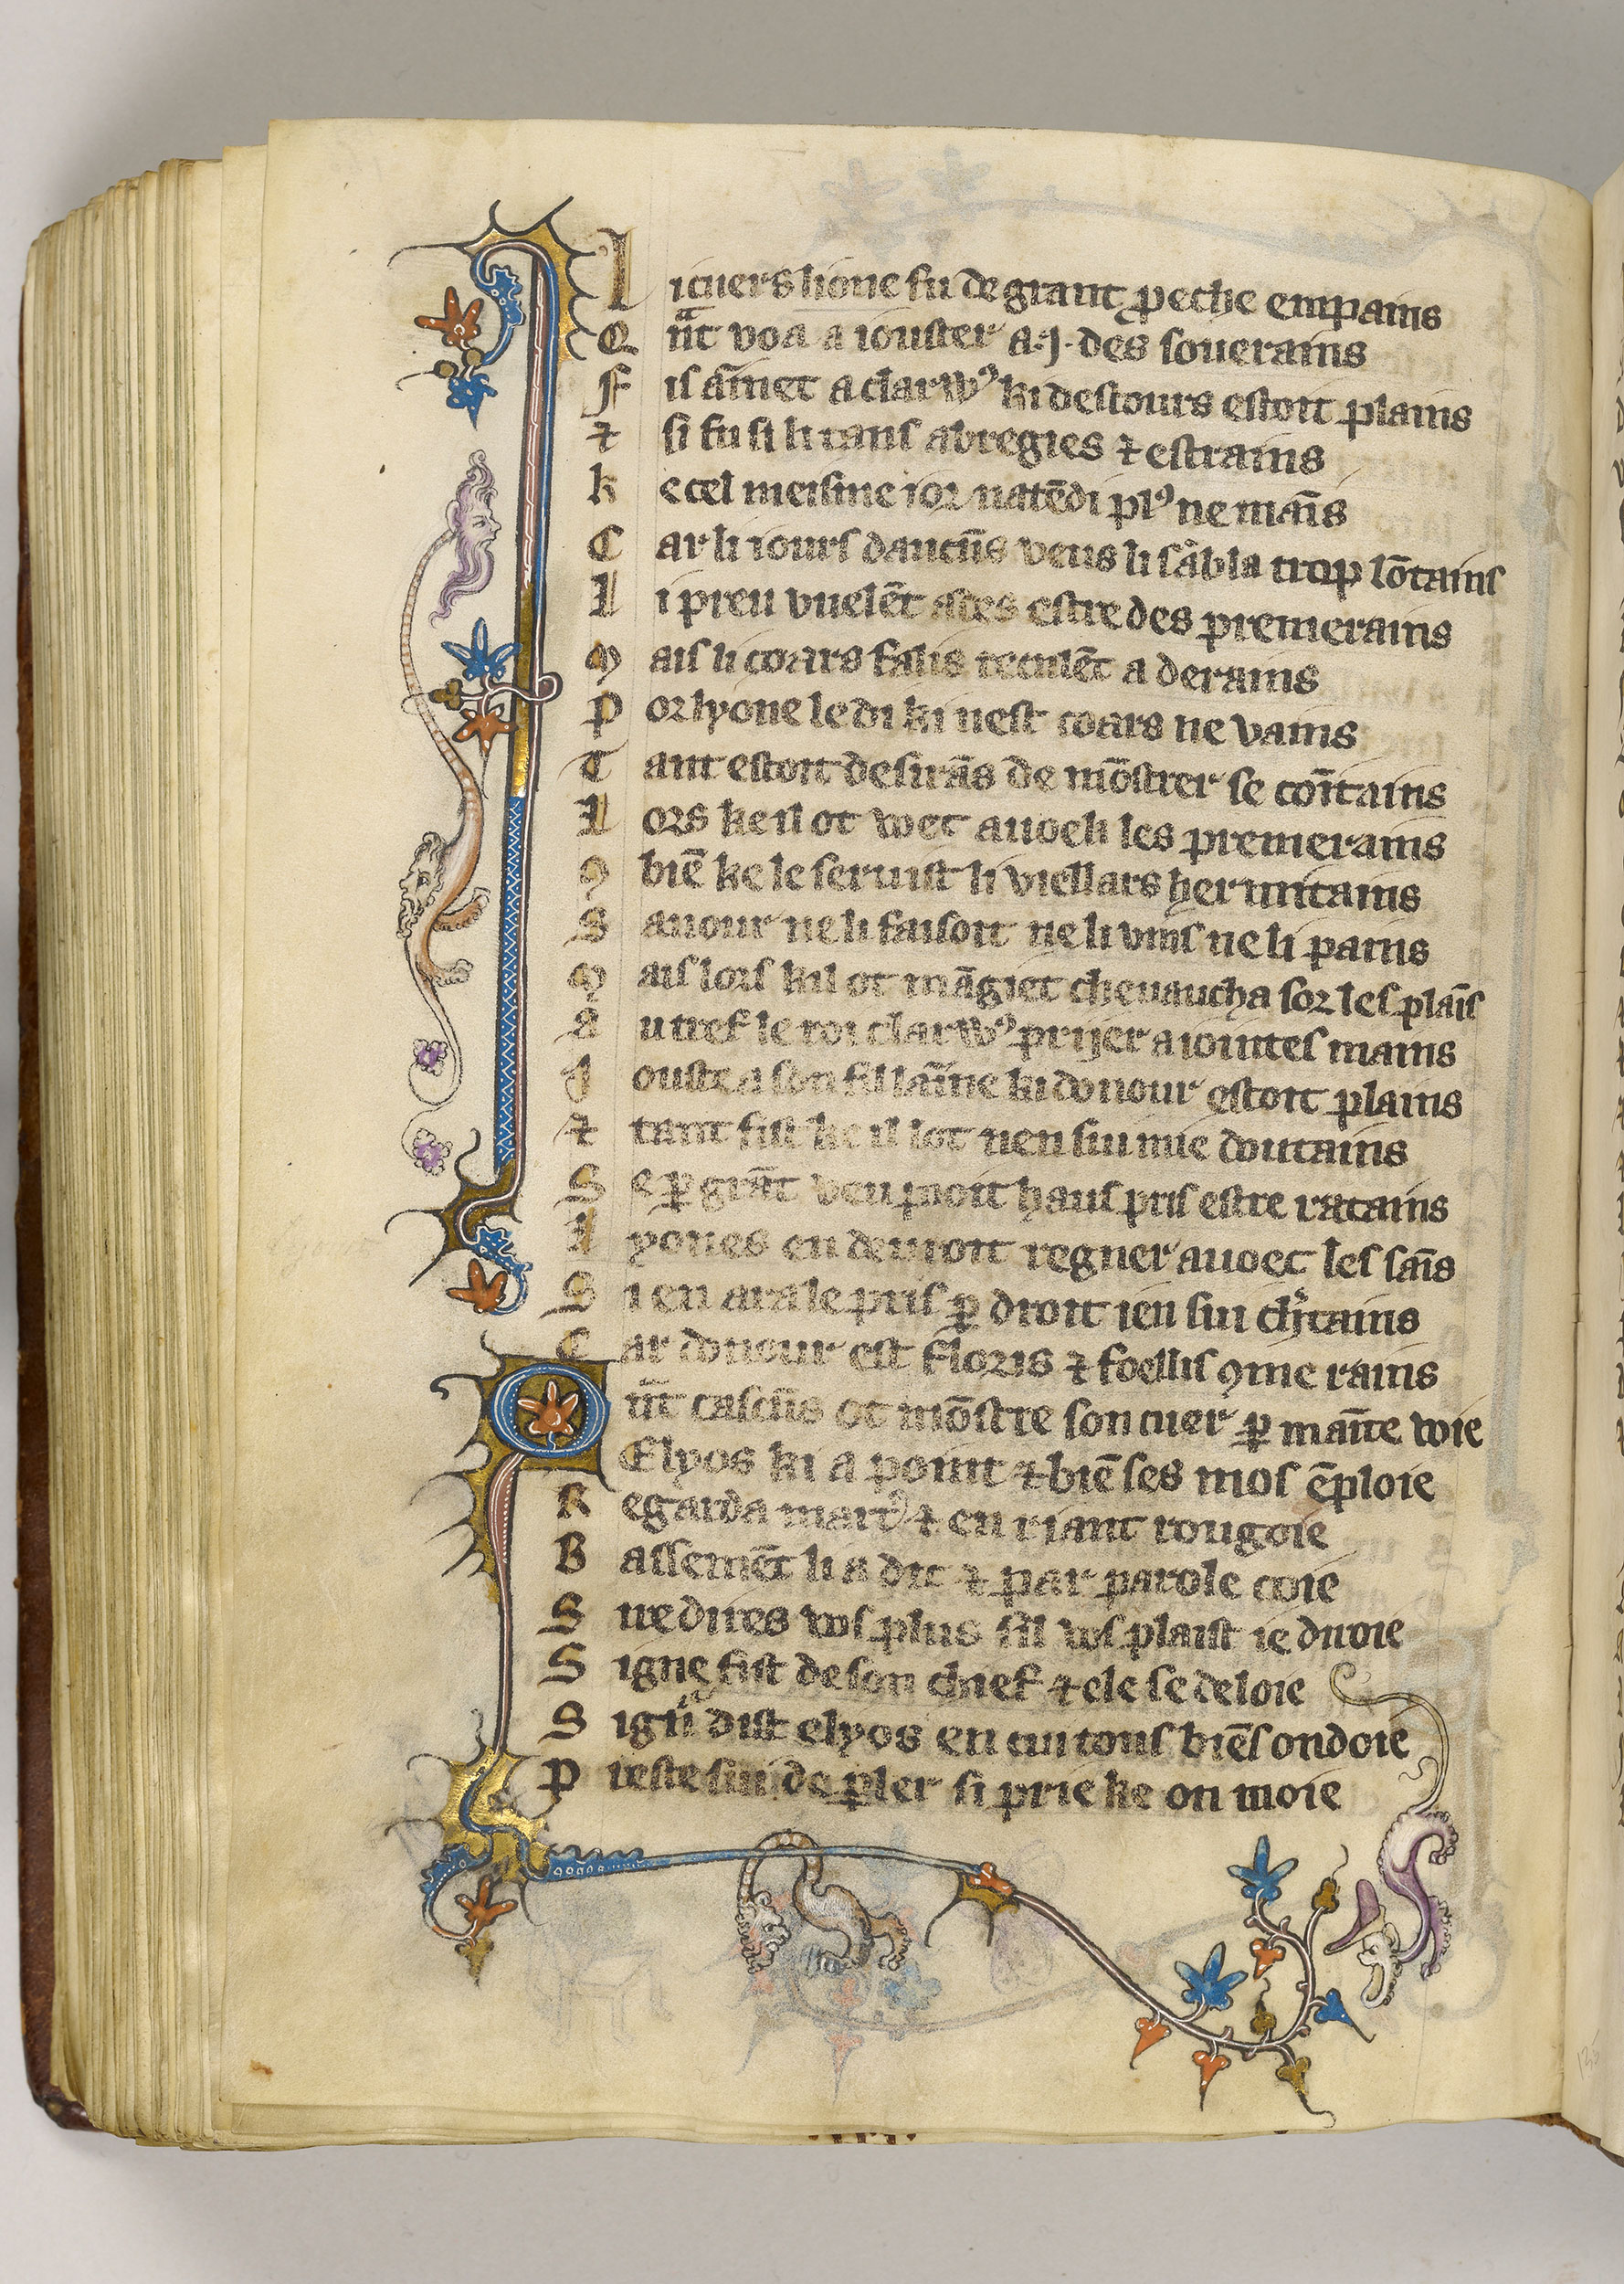 L icuers lione fu de grant peche empains
Q nͣt voa a iouster a .j. des souerains
F is am̄et a clarꝰ ki destours estoit plains
⁊ si fu si li tans abregies ⁊ estrains
k e cel meisme ior natēdi plꝰ ne mais̄
C ar li iours daucūs veus li sābla trop lōtains
L i preu vuelēt ades estre des premerains
M ais li coars falis reculēt a derains
P or lyone le di ki nest coars ne vains
T ant estoit desirās de mōstrer se cōtains
L ors ke il ot voet auoeli les premerains
ꝯ biē ke le seruist li viellars hermitains
S auour ne li faisoit ne li vins ne li pains
M ais lors kil ot māgiet cheuaucha sor les plaīs
A u tref le roi clarꝰ prijer a iointes mains
I ouste a son fil laīne ki donour estoit plains
⁊ tant fist ke il lot nen sui mie doutains
S e ꝑ grāt veu pooit haus pris estre ratains
L yones en deuroit regner auoec les sāis
S i en ara le pris ꝑ droit ien sui chͬtains
C ar donour est floris ⁊ foellis ꝯme rains
Q n̄t cascūs ot mōstre son cuer ꝑ mainte voie
Elyos ki a point ⁊ biē ses mos ēploie
R egarda martꝰ ⁊ en riant rougoie
B assemēt li a dit ⁊ par parole coie
S ne dires vos plus sil vos plaist ie diroie
S igne fist de son chief ⁊ ele se deloie
S ign̄ dist elyos en cui tous biēs ondoie
P reste sui de ꝑler si prie ke on moie